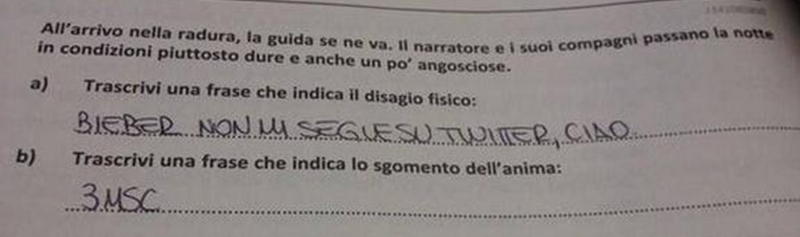 All'arrivo nella radura, la guida se ne va. Il narratore e i suoi compagni passano la notte
in condizioni piuttosto dure e anche un po' angosciose.
a) Trascrivi una frase che indica il disagio fisico:
BIEBER NON MI SEGUE SU TWITTER, CIAO
b) Trascrivi una frase che indica lo sgomento dell'anima:
3MSC